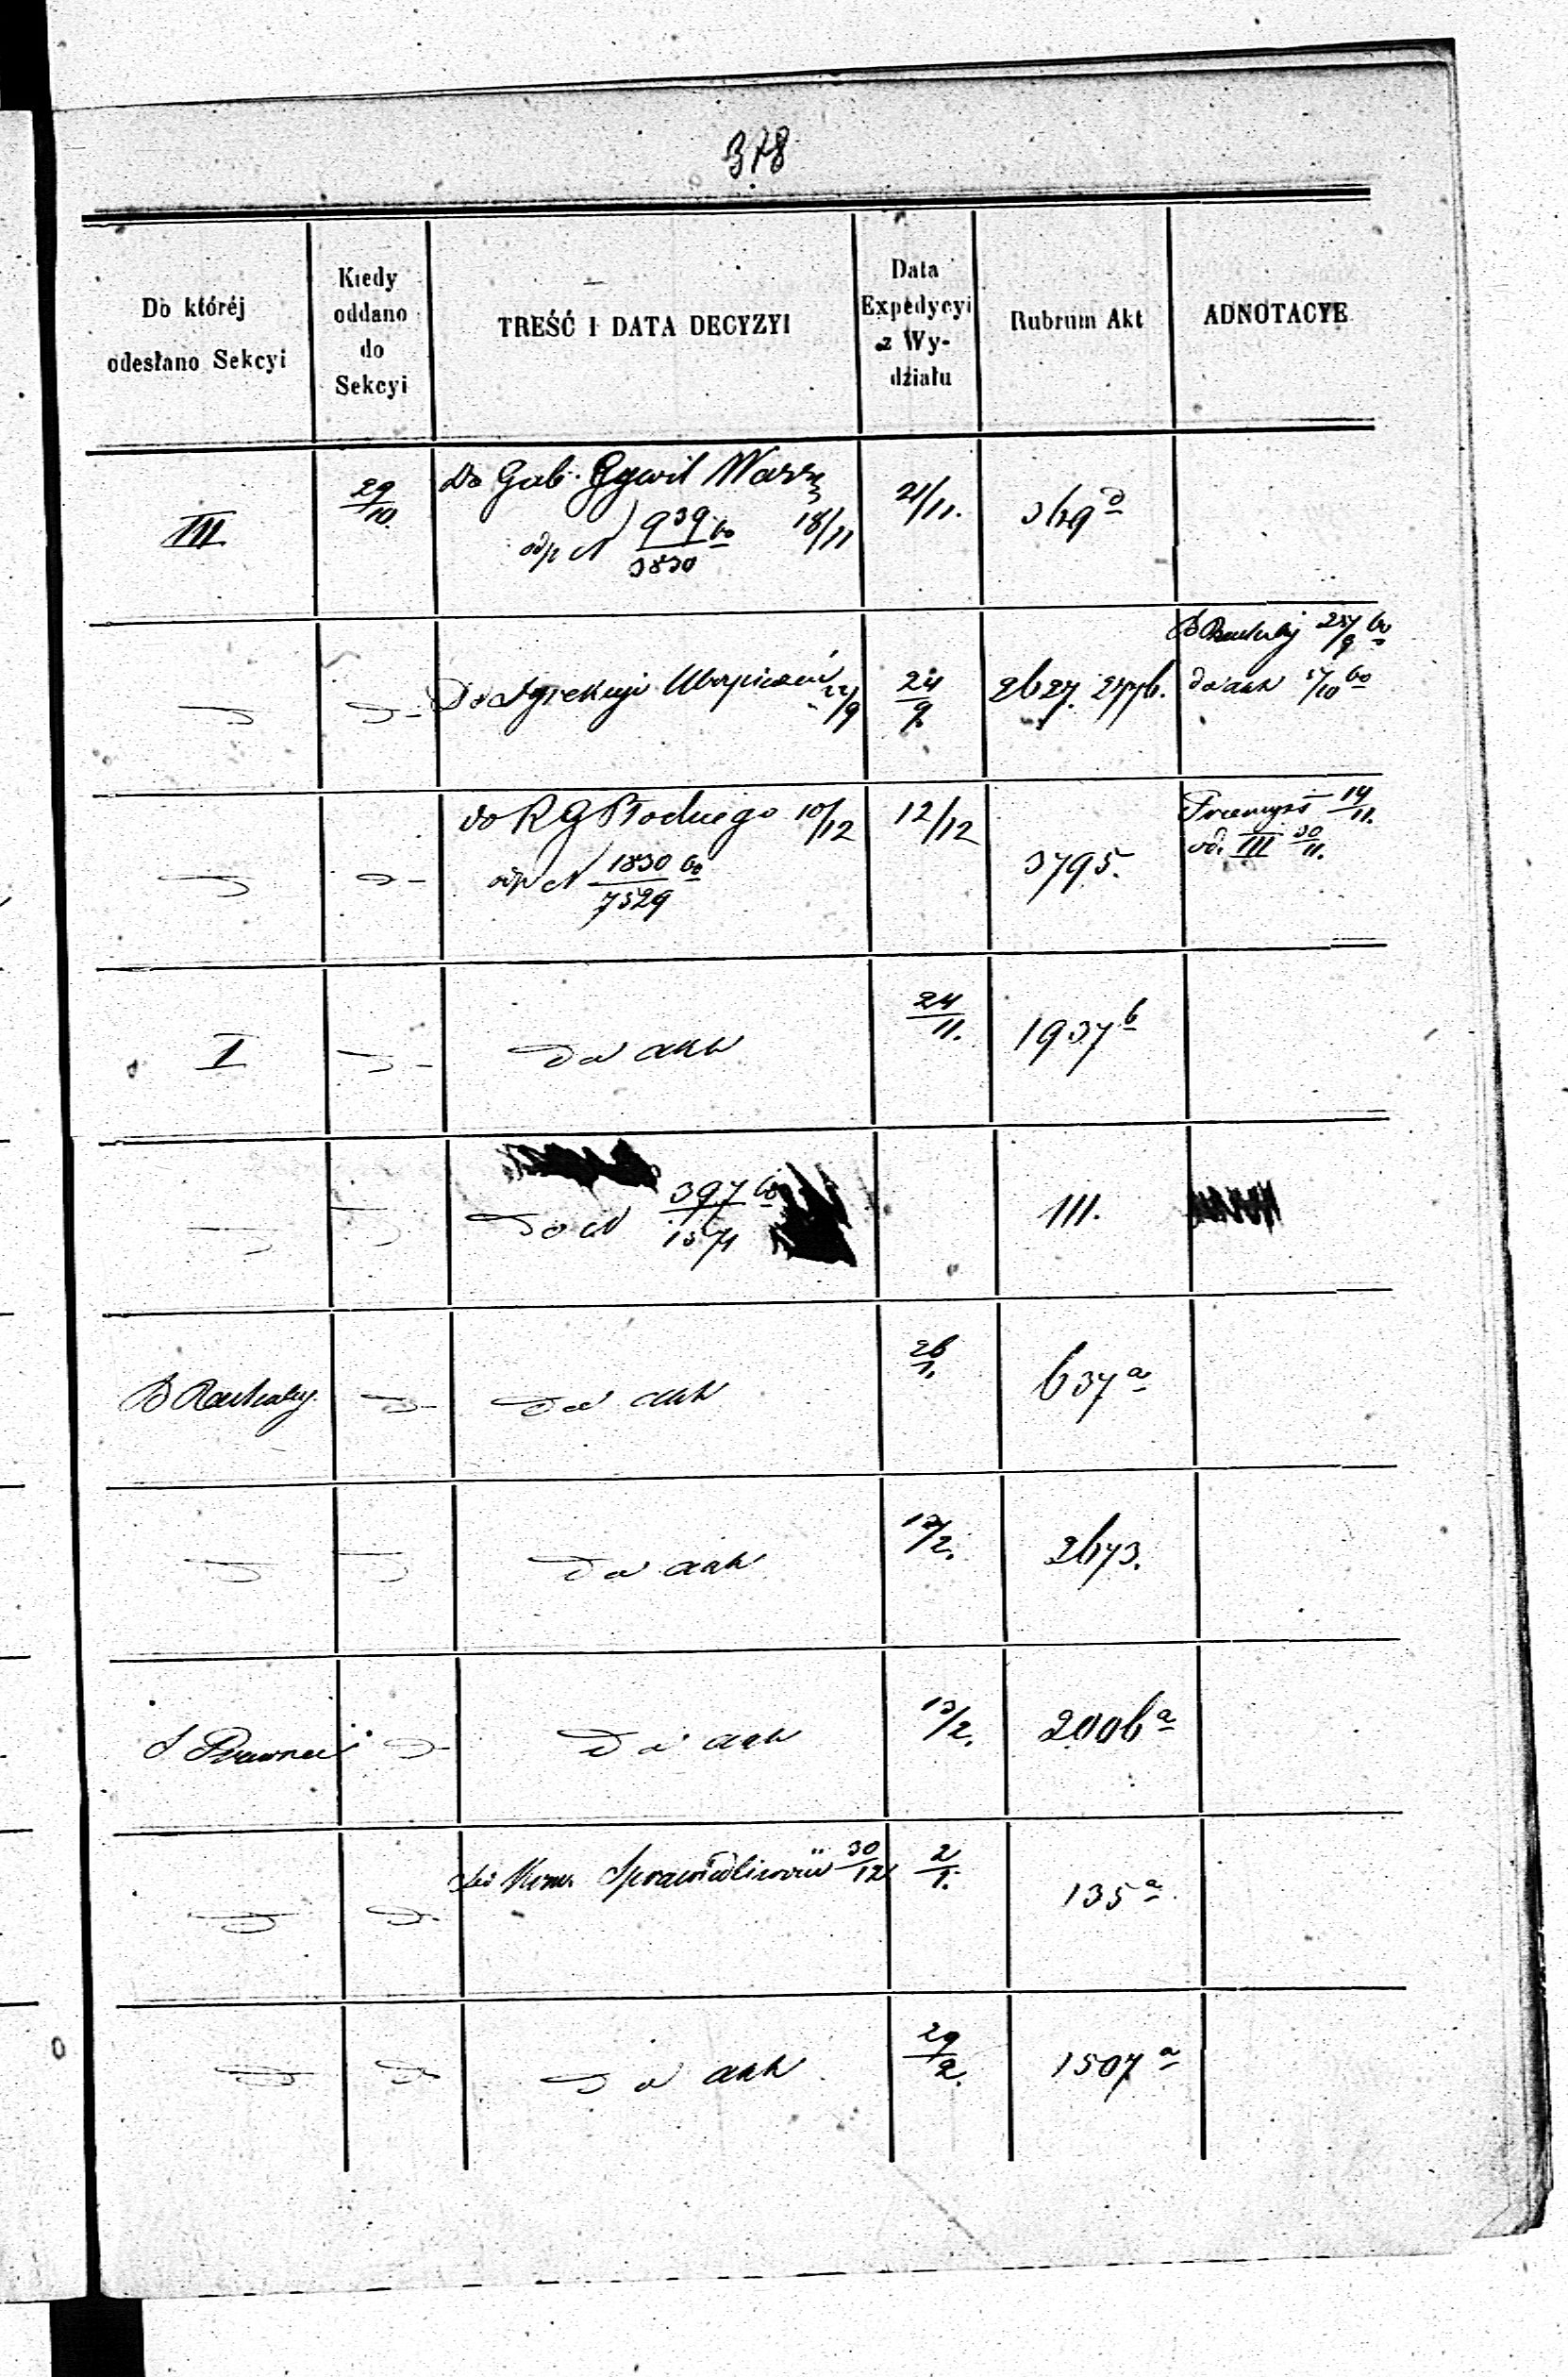 378
Do któréj
odesłano Sekcyi
Kiedy
oddano
do
Sekcyi
TREŚĆ I DATA DECYZYI
Data
Expedycyi
z Wy-
działu
Rubrum Akt
ADNOTACYE
III
29/10.
Do Gub. Cywil Warsz
odp N 939/3830 60 18/11
21/11.
Do Dyrekcyi Ubezpieczeń 22/9
24/9.
2627.
60
do akt 17/10 60
do R G Płockiego 10/12
odp N 1830/7529 60
12/12
3795.
Przemysł 14/11.
od. III 30/11.
I
do akt
24/11.
1937 b
do N 397 60
111.
B Rachuby
do akt
26/1.
637 a
do akt
2673.
S Prawnej
do akt
13/2.
2006 a
do Kom. Sprawiedliwości 30/12
2/1.
135 a
do akt
29/2.
1507 a